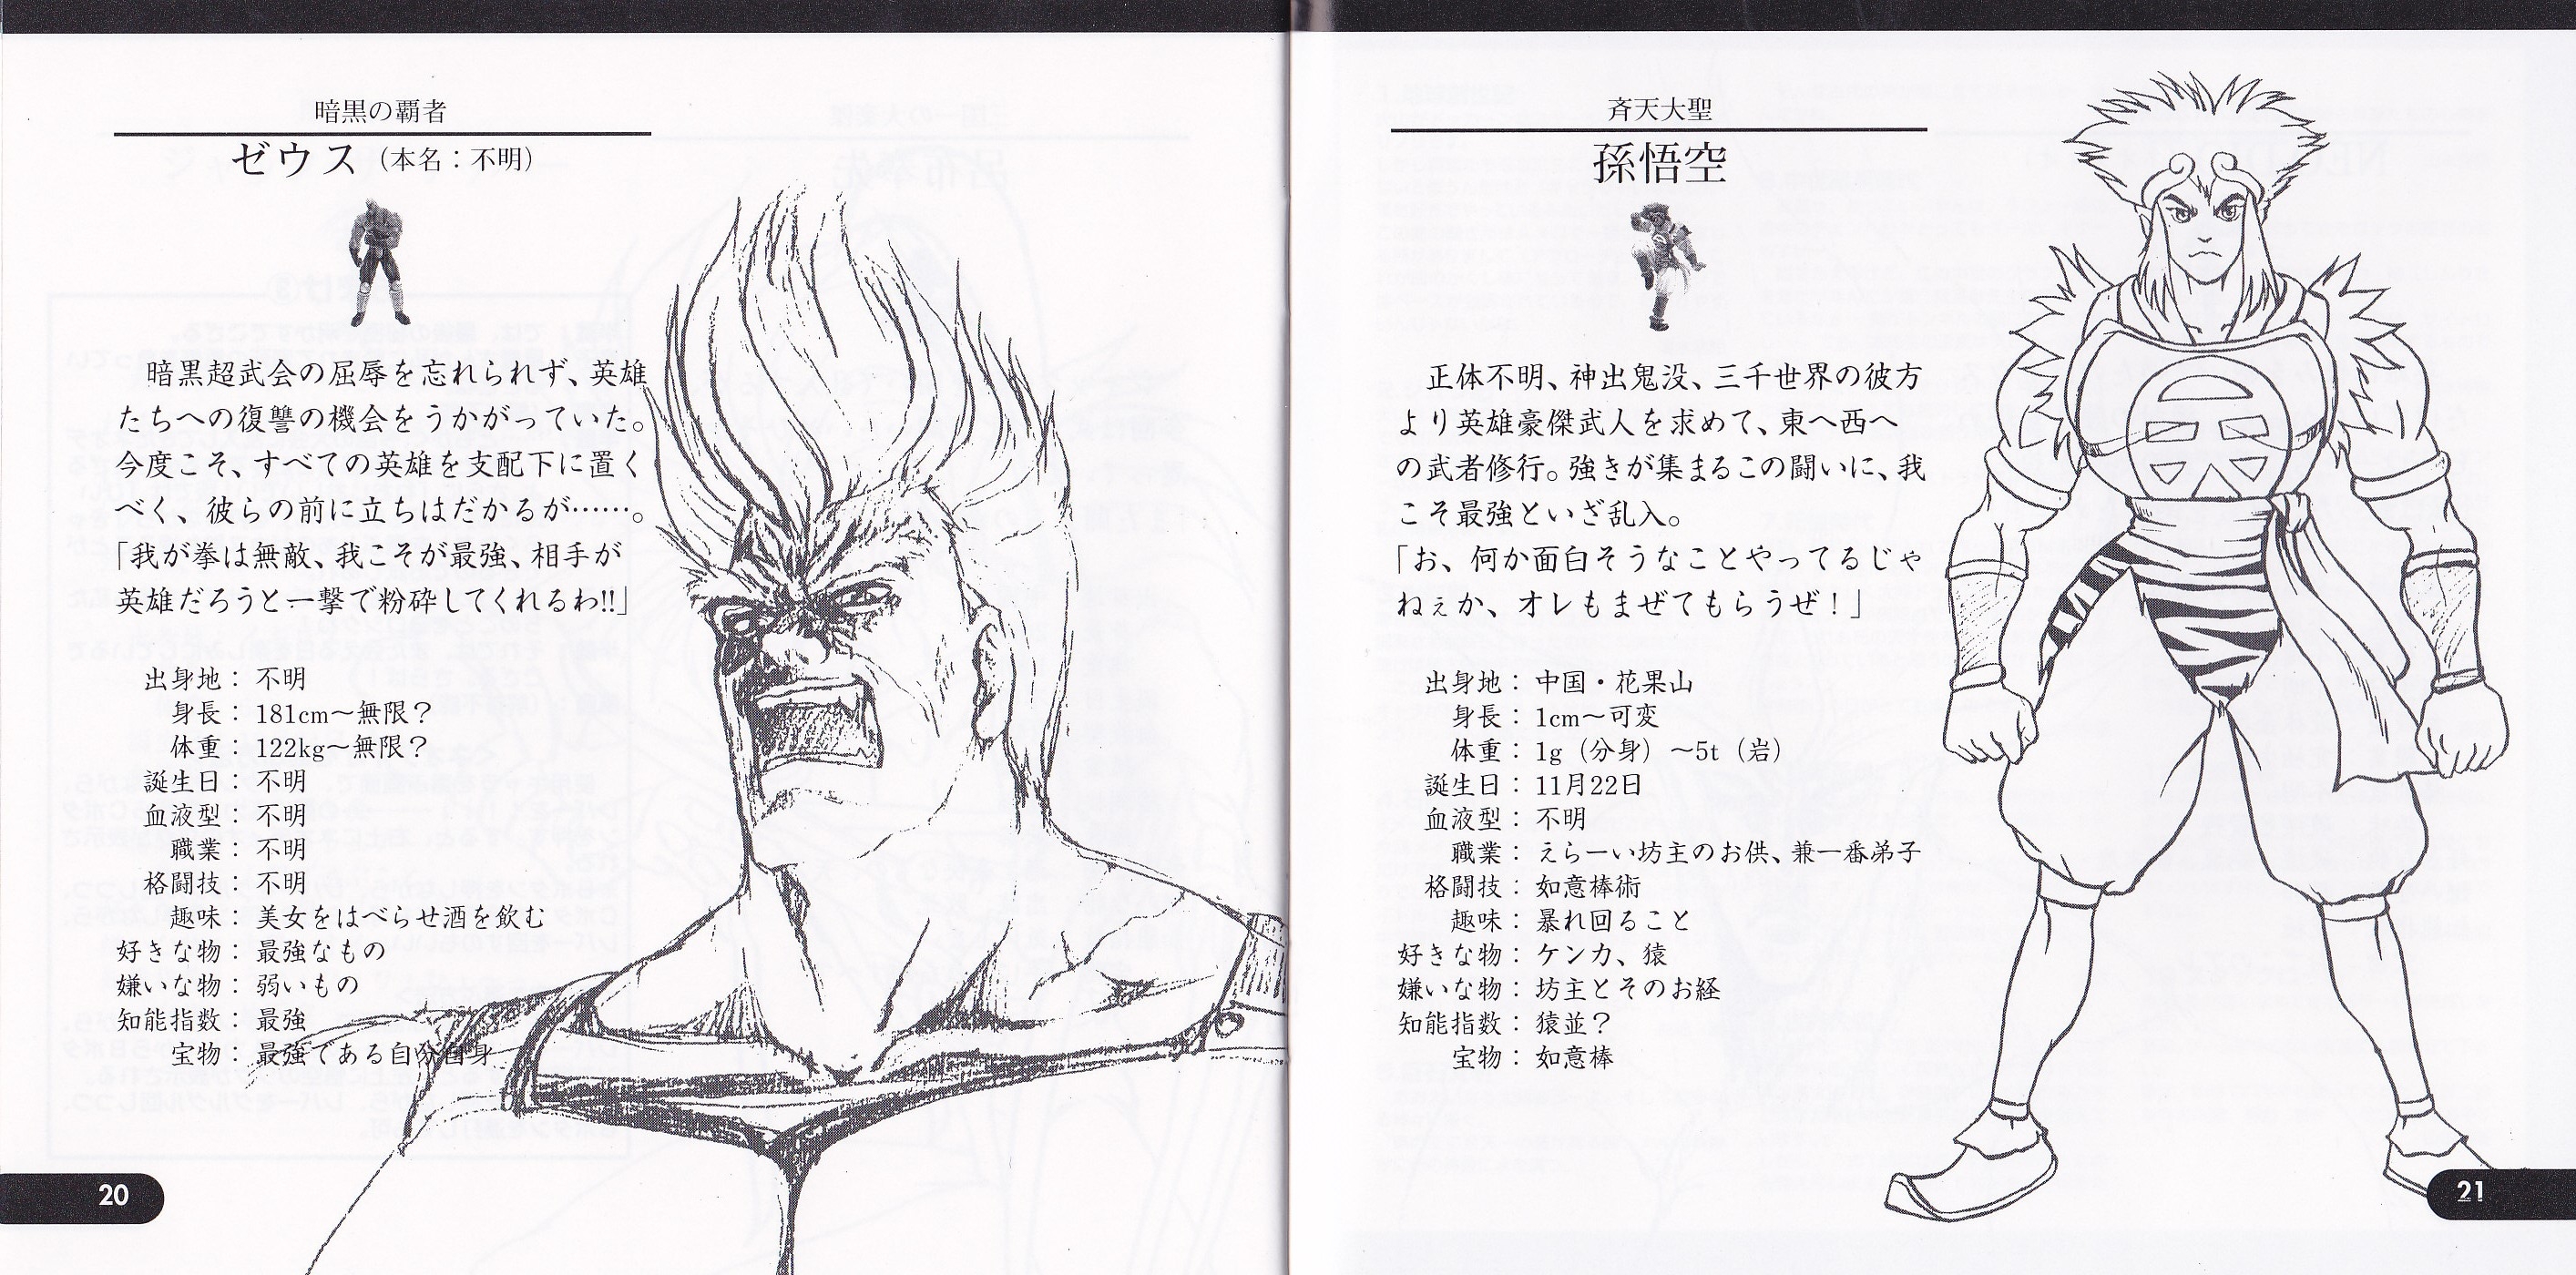 暗黒の覇者
ゼウス（本名：不明）
暗黒超武会の屈辱を忘れられず、英雄
たちへの復讐の機会をうかがっていた。
今度こそ、すべての英雄を支配下に置く
べく、彼らの前に立ちはだかるが……。
「我が拳は無敵、我こそが最強、相手が
英雄だろうと一撃で粉砕してくれるわ!!」
出身地：不明
身長：181cm～無限？
体重：122kg～無限？
誕生日：不明
血液型：不明
職業：不明
格闘技：不明
趣味：美女をはべらせ酒を飲む
好きな物：最強なもの
嫌いな物：弱いもの
知能指数：最強
宝物：最強である自分自身
20
斉天大聖
孫悟空
正体不明、神出鬼没、三千世界の彼方
より英雄豪傑武人を求めて、東へ西へ
の武者修行。強きが集まるこの闘いに、我
こそ最強といざ乱入。
「お、何か面白そうなことやってるじゃ
ねぇか、オレもまぜてもらうぜ！」
出身地：中国・花果山
身長：1cm～可変
体重：1g（分身）～5t（岩）
誕生日：11月22日
血液型：不明
職業：えらーい坊主のお供、兼一番弟子
格闘技：如意棒術
趣味：暴れ回ること
好きな物：ケンカ、猿
嫌いな物：坊主とそのお経
知能指数：猿並？
宝物：如意棒
21